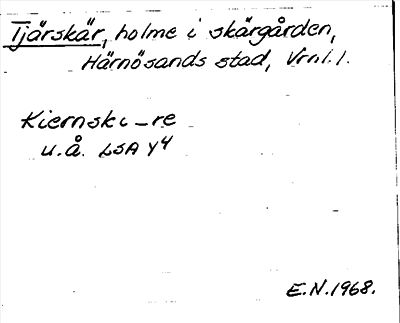 Tjärskär, holme i skärgården,
Härnösands stad, Vrnl.l.
Kiernski-re
u.å. LSA Y4
E.N.1968.